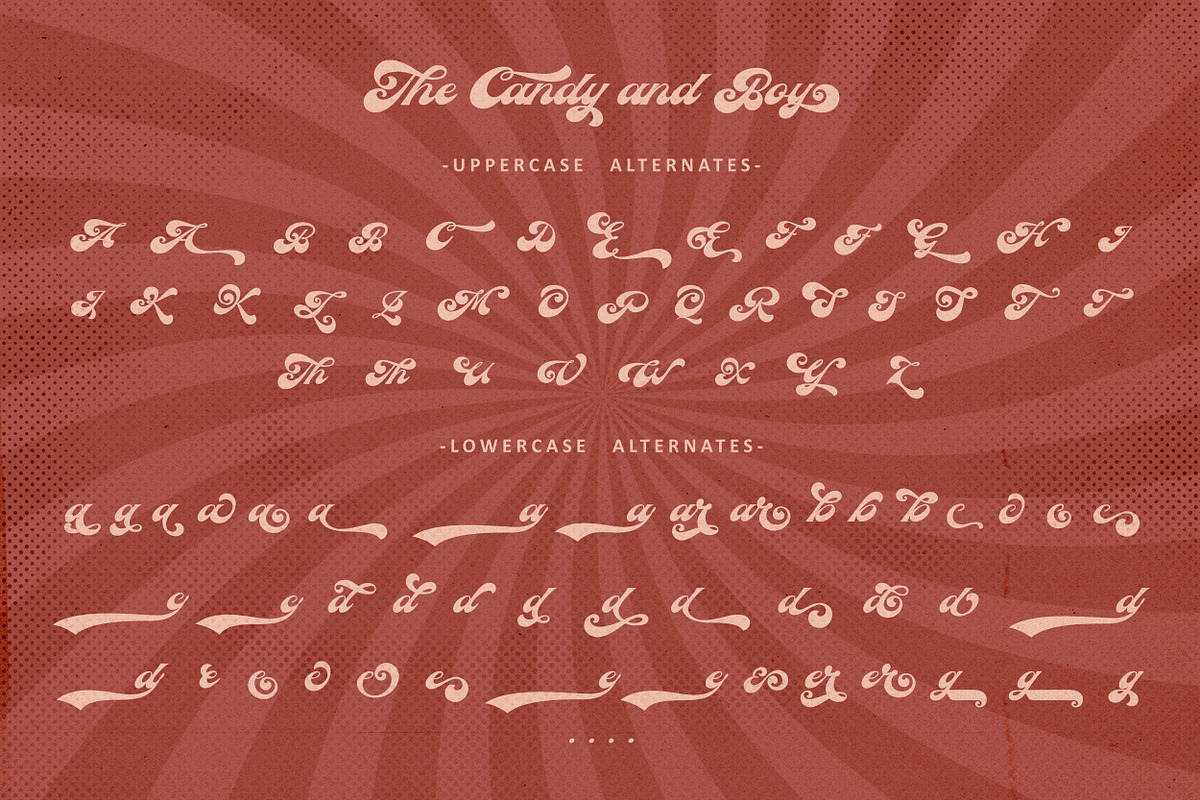 The Candy and Boy
-UPPERCASE ALTERNATES-
A A B B C D E E F F G H I
J K K L L M O P Q R S S T T T
Th Th U W W X Y Z
-LOWERCASE ALTERNATES-
a a a a a a a a ar ar b b b c c c c
c c d d d d d d d d d d
d e e e e e e e er er g g g
. . . .